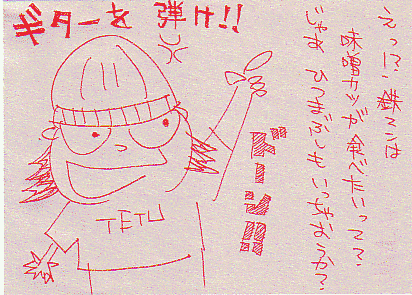 ギターを弾け!!
えっ!?鉄くんは
味噌カツが食べたいって?
じゃあひつまぶしもいっちゃおうか?
ドーン!!
TETU